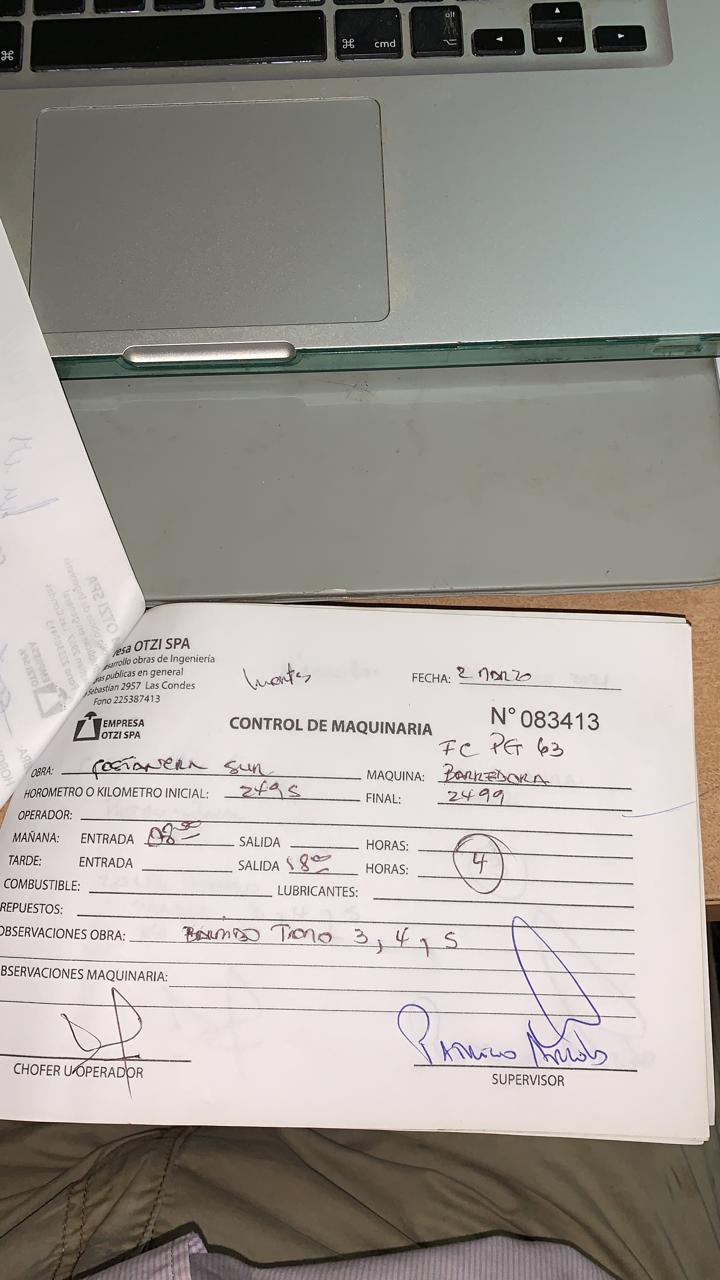 cmd
alt
esa OTZI SPA
arrollo obras de Ingeniería
ras publicas en general
Sebastian 2957 Las Condes
Fono 225387413
Martes
FECHA: 2 MARZO
EMPRESA
OTZI SPA
CONTROL DE MAQUINARIA
N° 083413
FC PG 63
OBRA: COSTANERA SUR MAQUINA: BARREDORA
HOROMETRO O KILOMETRO INICIAL: 2495 FINAL: 2499
OPERADOR:
MAÑANA: ENTRADA 08:00 SALIDA HORAS:
TARDE: ENTRADA SALIDA 18:00 HORAS: 4
COMBUSTIBLE: LUBRICANTES:
REPUESTOS:
OBSERVACIONES OBRA: BARRIDO TRAMO 3, 4, 5
BSERVACIONES MAQUINARIA:
CHOFER U OPERADOR
SUPERVISOR